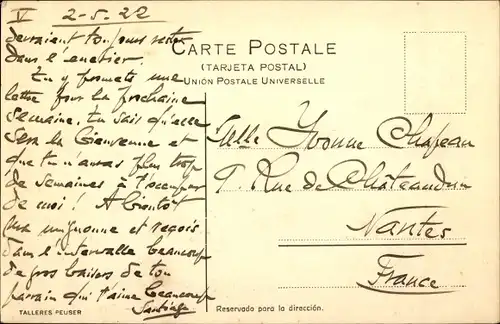 V 2-5-22
devraient toujours rester
dans l'encrier.
Tu y promets une
lettre pour la prochaine
semaine, tu sais qu'elle
sera la bienvenue et
que tu n'auras plus trop
de semaines à t'occuper
de moi! A bientôt
ma mignonne et reçois
dans l'intervalle beaucoup
de gros baisers de ton
parrain qui t'aime beaucoup
Santiago
TALLERES PEUSER
CARTE POSTALE
(TARJETA POSTAL)
UNION POSTALE UNIVERSELLE
Melle Yvonne Chapeau
9. Rue de Châteaudun
Nantes
France
Reservado para la dirección.